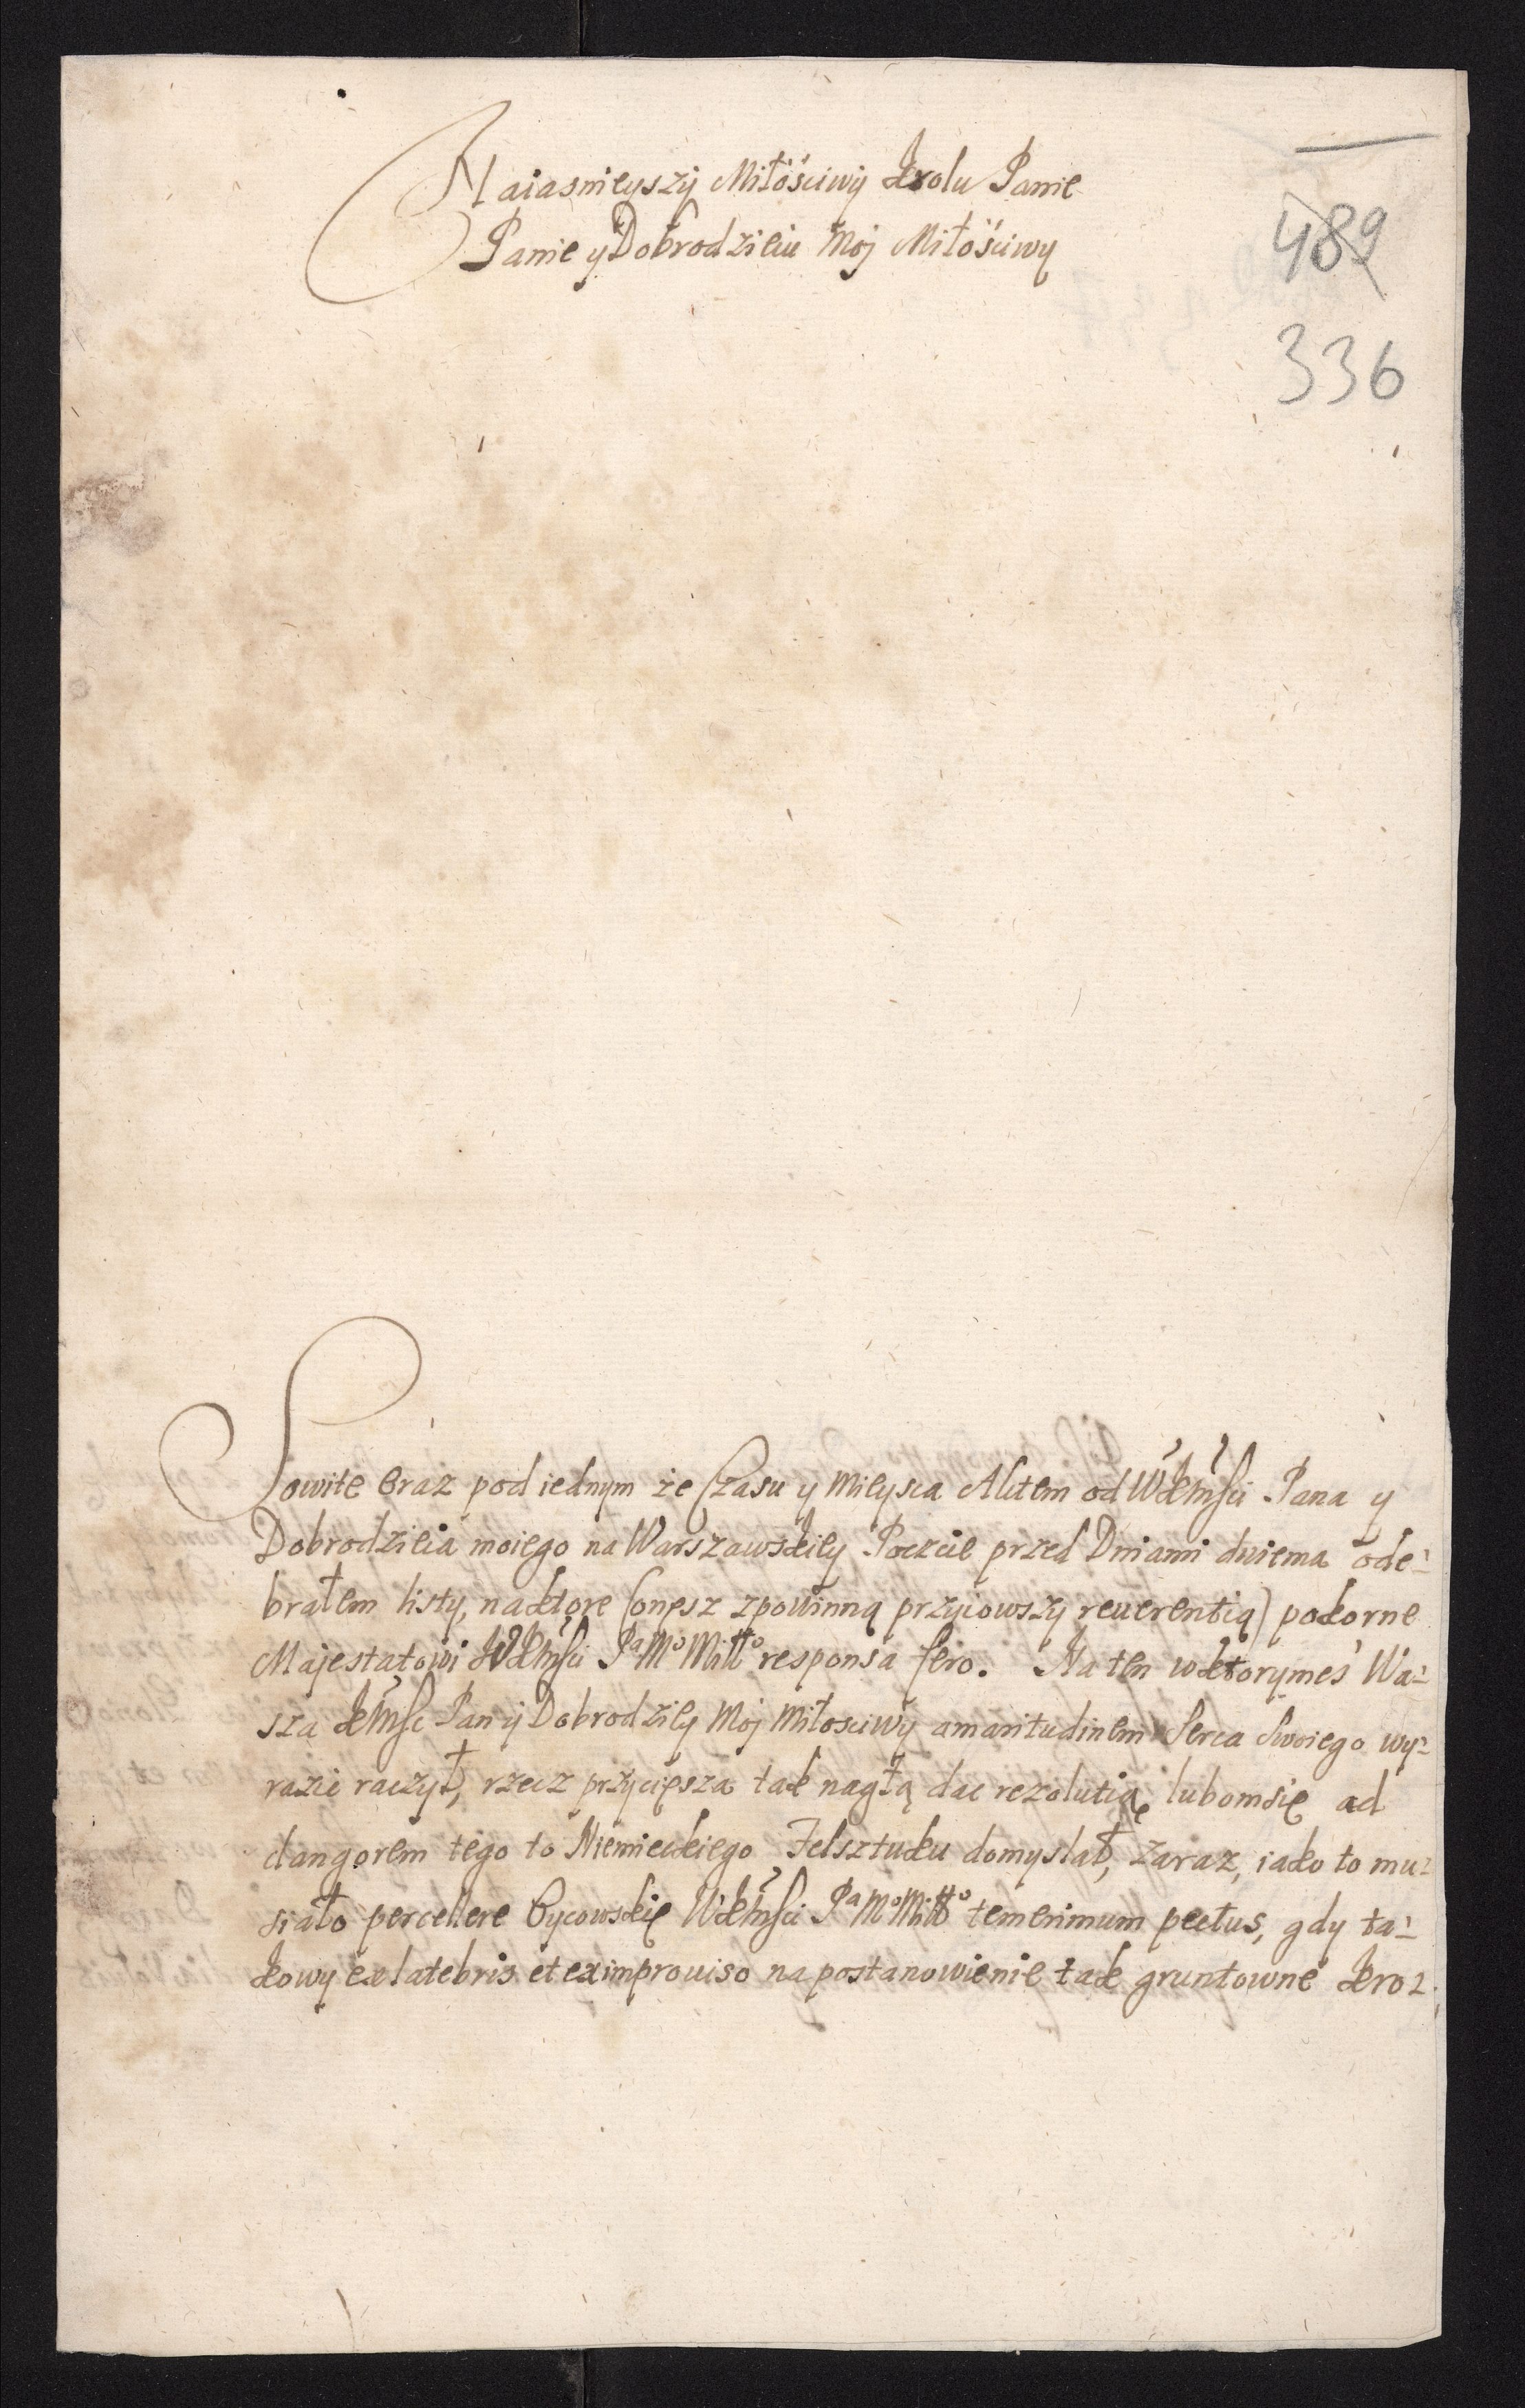 Naiasnieyszy Miłośćiwy Krolu Panie
Panie y Dobrodzieiu Moj Miłośćiwy
489
336
Sowite oraz pod iednym że Czasu y Mieysca Aktem od WKMsci Pana y
Dobrodzieia moiego na Warszawskiey Poczcie przed Dniami dwiema ode-
brałem listy, na ktore (onesz z powinną przyiowszy reuerentią) pokorne
Majestatowi WKMsci Pa Mo Miłło responsa fero. Na ten w ktorymes Wa-
sza KMsc Pan y Dobrodziey Moj Miłosciwy amaritudinem Serca Swoiego wy-
razic raczył, rzecz przycięsza tak nagłą dac rezolutią, lubom się ad
clangorem tego to Niemieckiego Felsztuku domyslał, zaraz, iako to mu-
siało percellere Oycowskie WKMsci Pa Mo Miłło tenerimum pectus, gdy ta-
kowy ex latebris et ex improuiso na postanowienie tak gruntowne Kro-